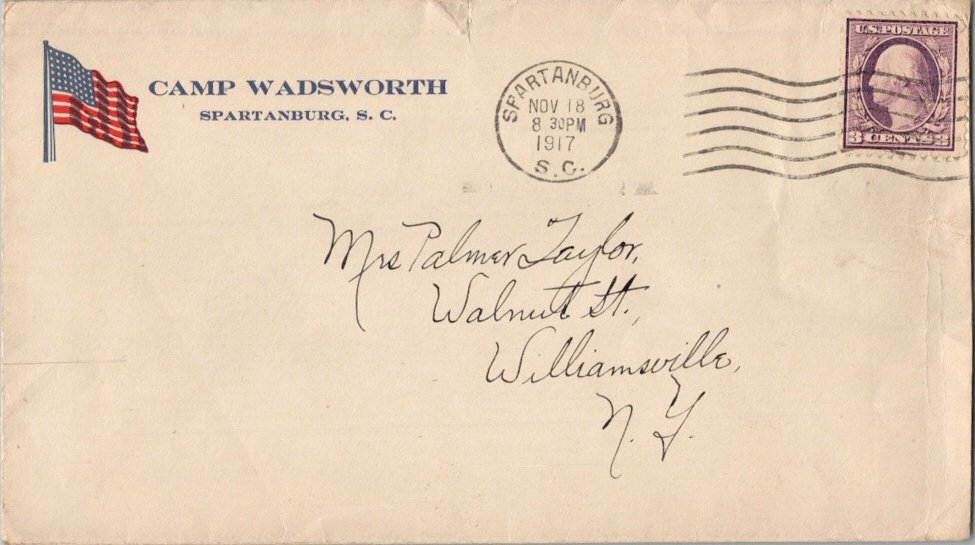 CAMP WADSWORTH
SPARTANBURG, S. C.
SPARTANBURG
NOV 18
8 30PM
1917
S.C.
U.S. POSTAGE
3 CENTS 3
Mrs Palmer Taylor,
Walnut St.,
Williamsville,
N. Y.